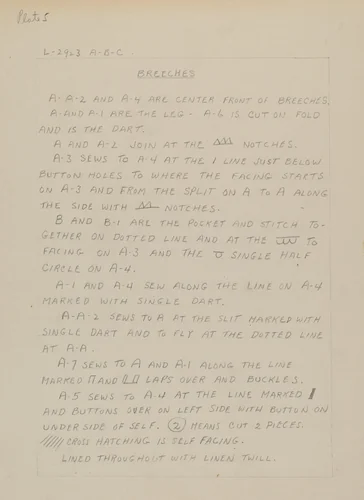 Plate 5
L-2923 A-B-C
BREECHES
A-A-2 AND A-4 ARE CENTER FRONT OF BREECHES,
A-AND A-1 ARE THE LEG - A-6 IS CUT ON FOLD
AND IS THE DART.
A AND A-2 JOIN AT THE NOTCHES.
A-3 SEWS TO A-4 AT THE 1 LINE JUST BELOW
BUTTON HOLES TO WHERE THE FACING STARTS
ON A-3 AND FROM THE SPLIT ON A TO A ALONG
THE SIDE WITH NOTCHES.
B AND B-1 ARE THE POCKET AND STITCH TO-
GETHER ON DOTTED LINE AND AT THE TO
FACING ON A-3 AND THE SINGLE HALF
CIRCLE ON A-4.
A-1 AND A-4 SEW ALONG THE LINE ON A-4
MARKED WITH SINGLE DART.
A-A-2 SEWS TO A AT THE SLIT MARKED WITH
SINGLE DART AND TO FLY AT THE DOTTED LINE
AT A-A.
A-7 SEWS TO A AND A-1 ALONG THE LINE
MARKED AND LAPS OVER AND BUCKLES.
A-5 SEWS TO A-4 AT THE LINE MARKED
AND BUTTONS OVER ON LEFT SIDE WITH BUTTON ON
UNDER SIDE OF SELF. (2) MEANS CUT 2 PIECES.
///// CROSS HATCHING IS SELF FACING.
LINED THROUGHOUT WITH LINEN TWILL.